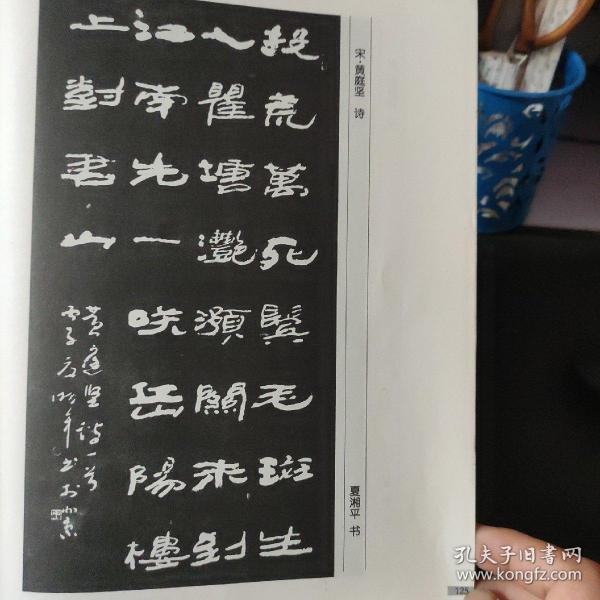 宋·黄庭坚 诗
夏湘平 书
投荒萬死鬢毛斑生
入瞿塘灩澦關未到
江南先一咲岳陽樓
上對君山
黄庭坚诗一首
书于北京
125
孔夫子旧书网
www.kongfz.com